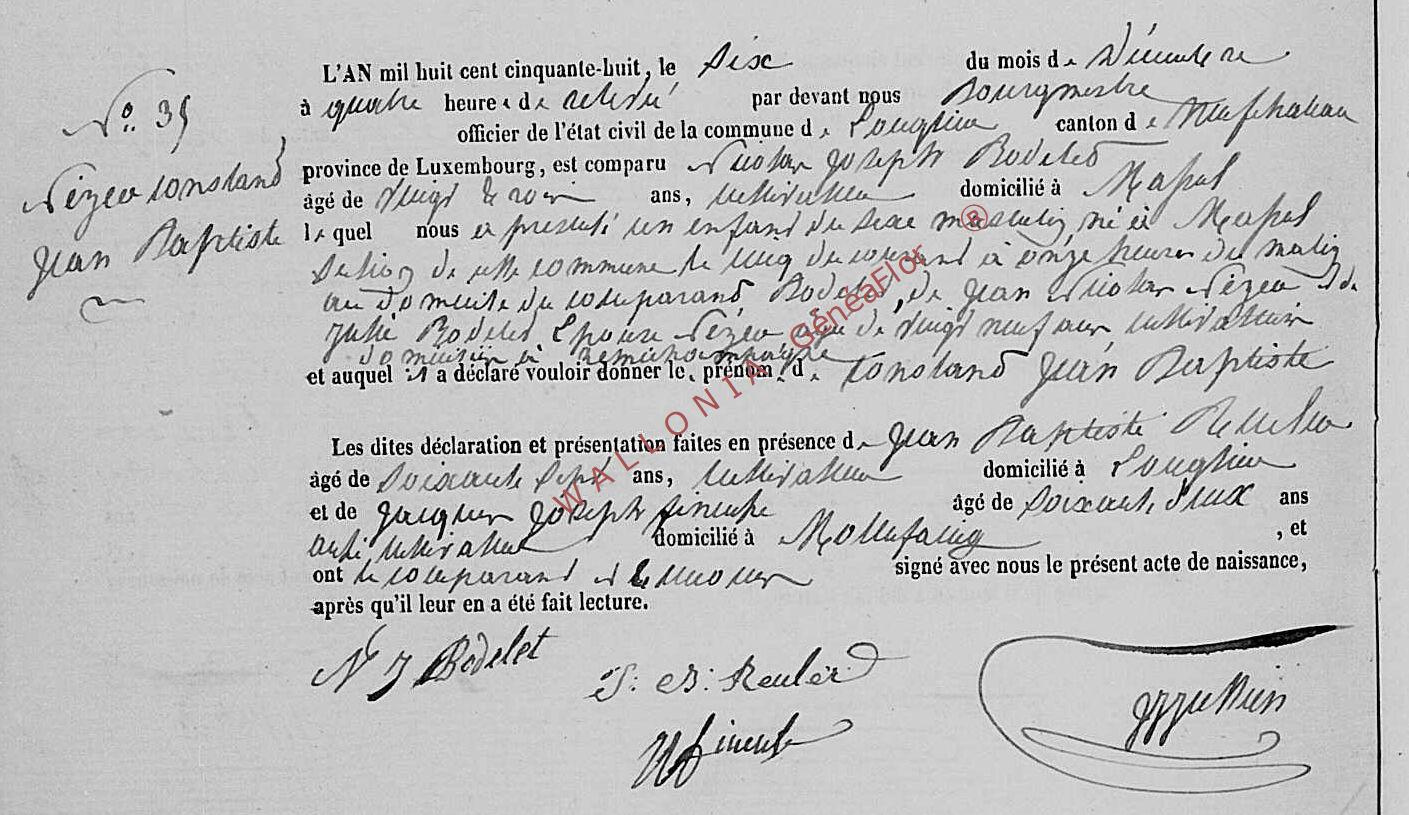 N° 35
Nezer Constand
Jean Baptiste
L'AN mil huit cent cinquante-huit, le Sixe du mois de Décembre
à quatre heures de relevé par devant nous Bourgmestre
officier de l'état civil de la commune de Longlier canton de Neufchateau
province de Luxembourg, est comparu Nicolas Joseph Bodelet
âgé de Vingt trois ans, cultivateur domicilié à Massul
lequel nous a presenté un enfant du sexe masculin né à Massul
Section de cette commune le cinq du courant à onze heures du matin
au domicile du comparand Bodelet, de Jean Nicolas Nezer et de
Julie Bodelet, Epouse Nezer agé de Vingt neuf ans cultivateurs
domiciliés à Remichampagne
et auquel il a déclaré vouloir donner les prénoms de Constand Jean Baptiste
Les dites déclaration et présentation faites en présence de Jean Baptiste Reuler
âgé de Soixante Sept ans, cultivateur domicilié à Longlier
et de Jacques Joseph âgé de Soixante Deux ans
aussi cultivateur domicilié à Mollefaing , et
ont le comparand et temoins signé avec nous le présent acte de naissance,
après qu'il leur en a été fait lecture.
N J Bodelet
J: B: Reuler
WALLONIA GénéaFlor ®